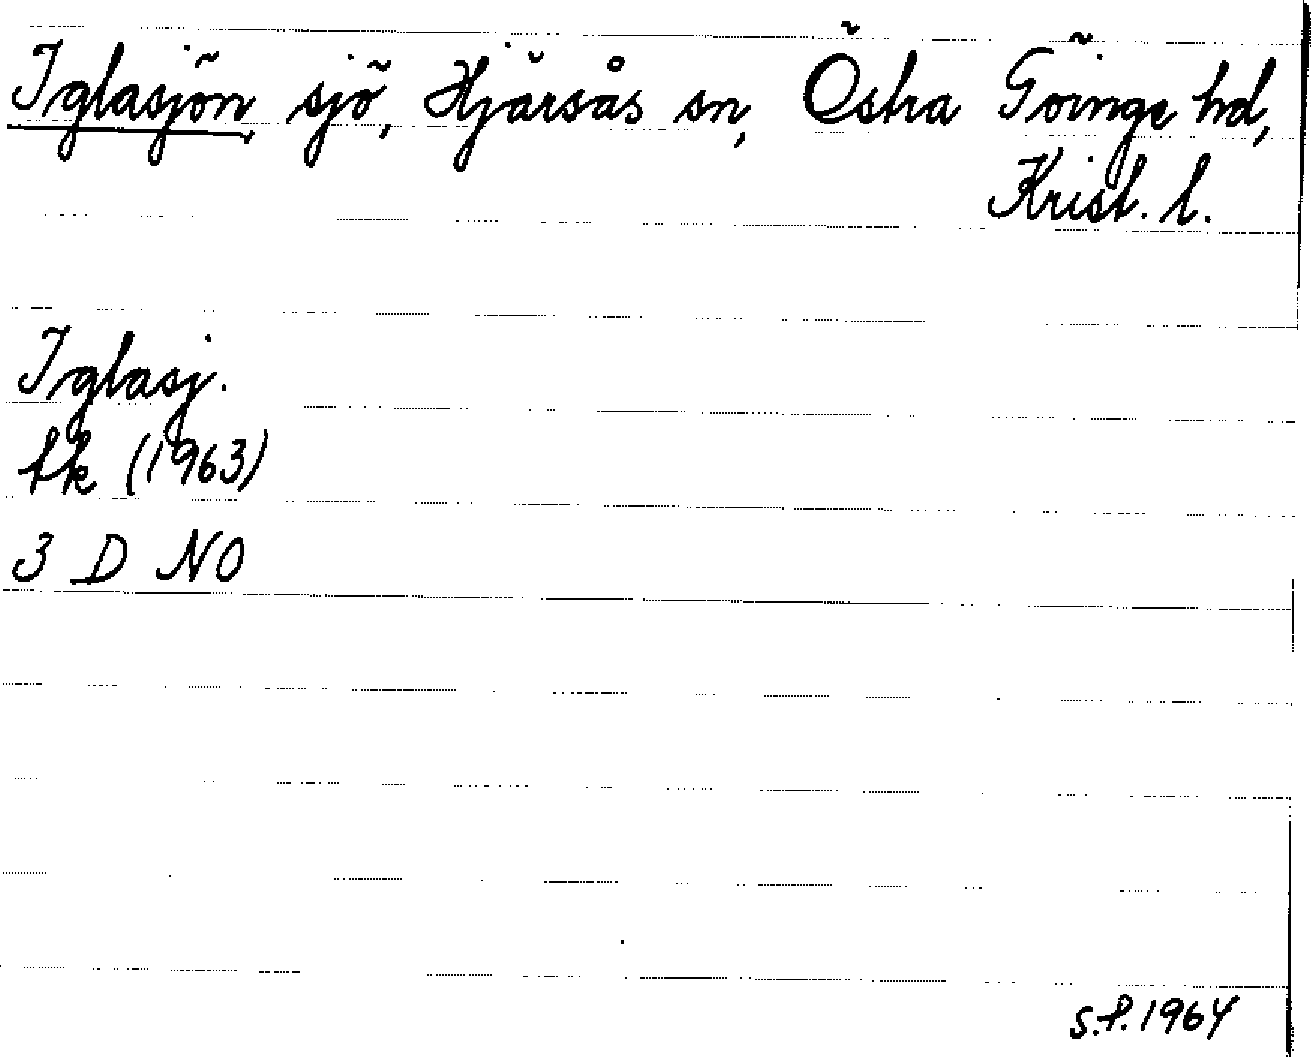 Iglasjön sjö, Hjärsås sn, Östra Göinge hd,
Krist. l.
Iglasj.
tk (1963)
3 D NO
s.f. 1964